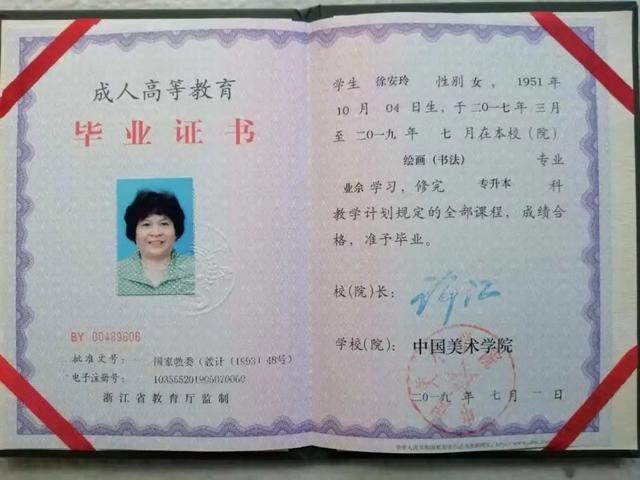 成人高等教育
毕业证书
BY 00489606
批准文号: 国家教委(教计(1993)48号)
电子注册号: 103555201905070060
浙江省教育厅监制
学生 徐安玲 性别 女, 1951 年
10 月 04 日生,于二〇一七年 三月
至 二〇一九年 七 月在本校(院)
绘画(书法) 专业
业余 学习,修完 专升本 科
教学计划规定的全部课程,成绩合
格,准予毕业。
校(院)长: 许江
学校(院): 中国美术学院
二〇一九年 七 月 一 日